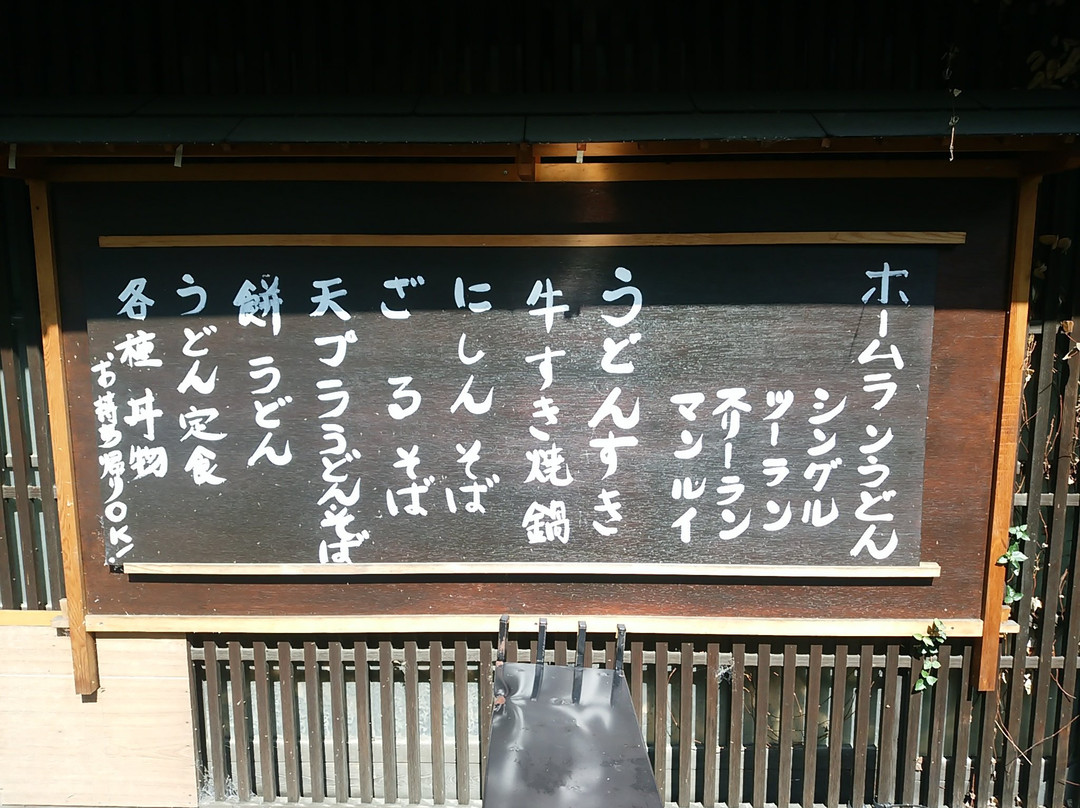 ホームランうどん
シングル
ツーラン
スリーラン
マンルイ
うどんすき
牛すき焼鍋
にしんそば
ざるそば
天プラうどん・そば
餅うどん
うどん定食
各種丼物
お持ち帰りOK!